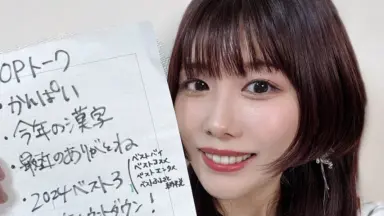 OPトーク
・かんぱい
・今年の漢字
・最近のありがとね
・2024ベスト3
ベストバイ
ベストコスメ
ベストエンタメ
ウントダウン!